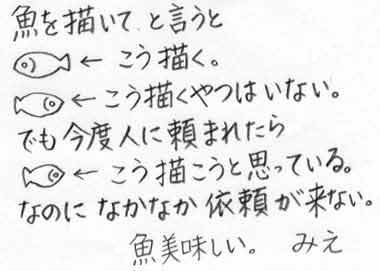 魚を描いて、と言うと
← こう描く。
← こう描くやつはいない。
でも今度人に頼まれたら
← こう描こうと思っている。
なのに なかなか 依頼が来ない。
魚美味しい。 みえ